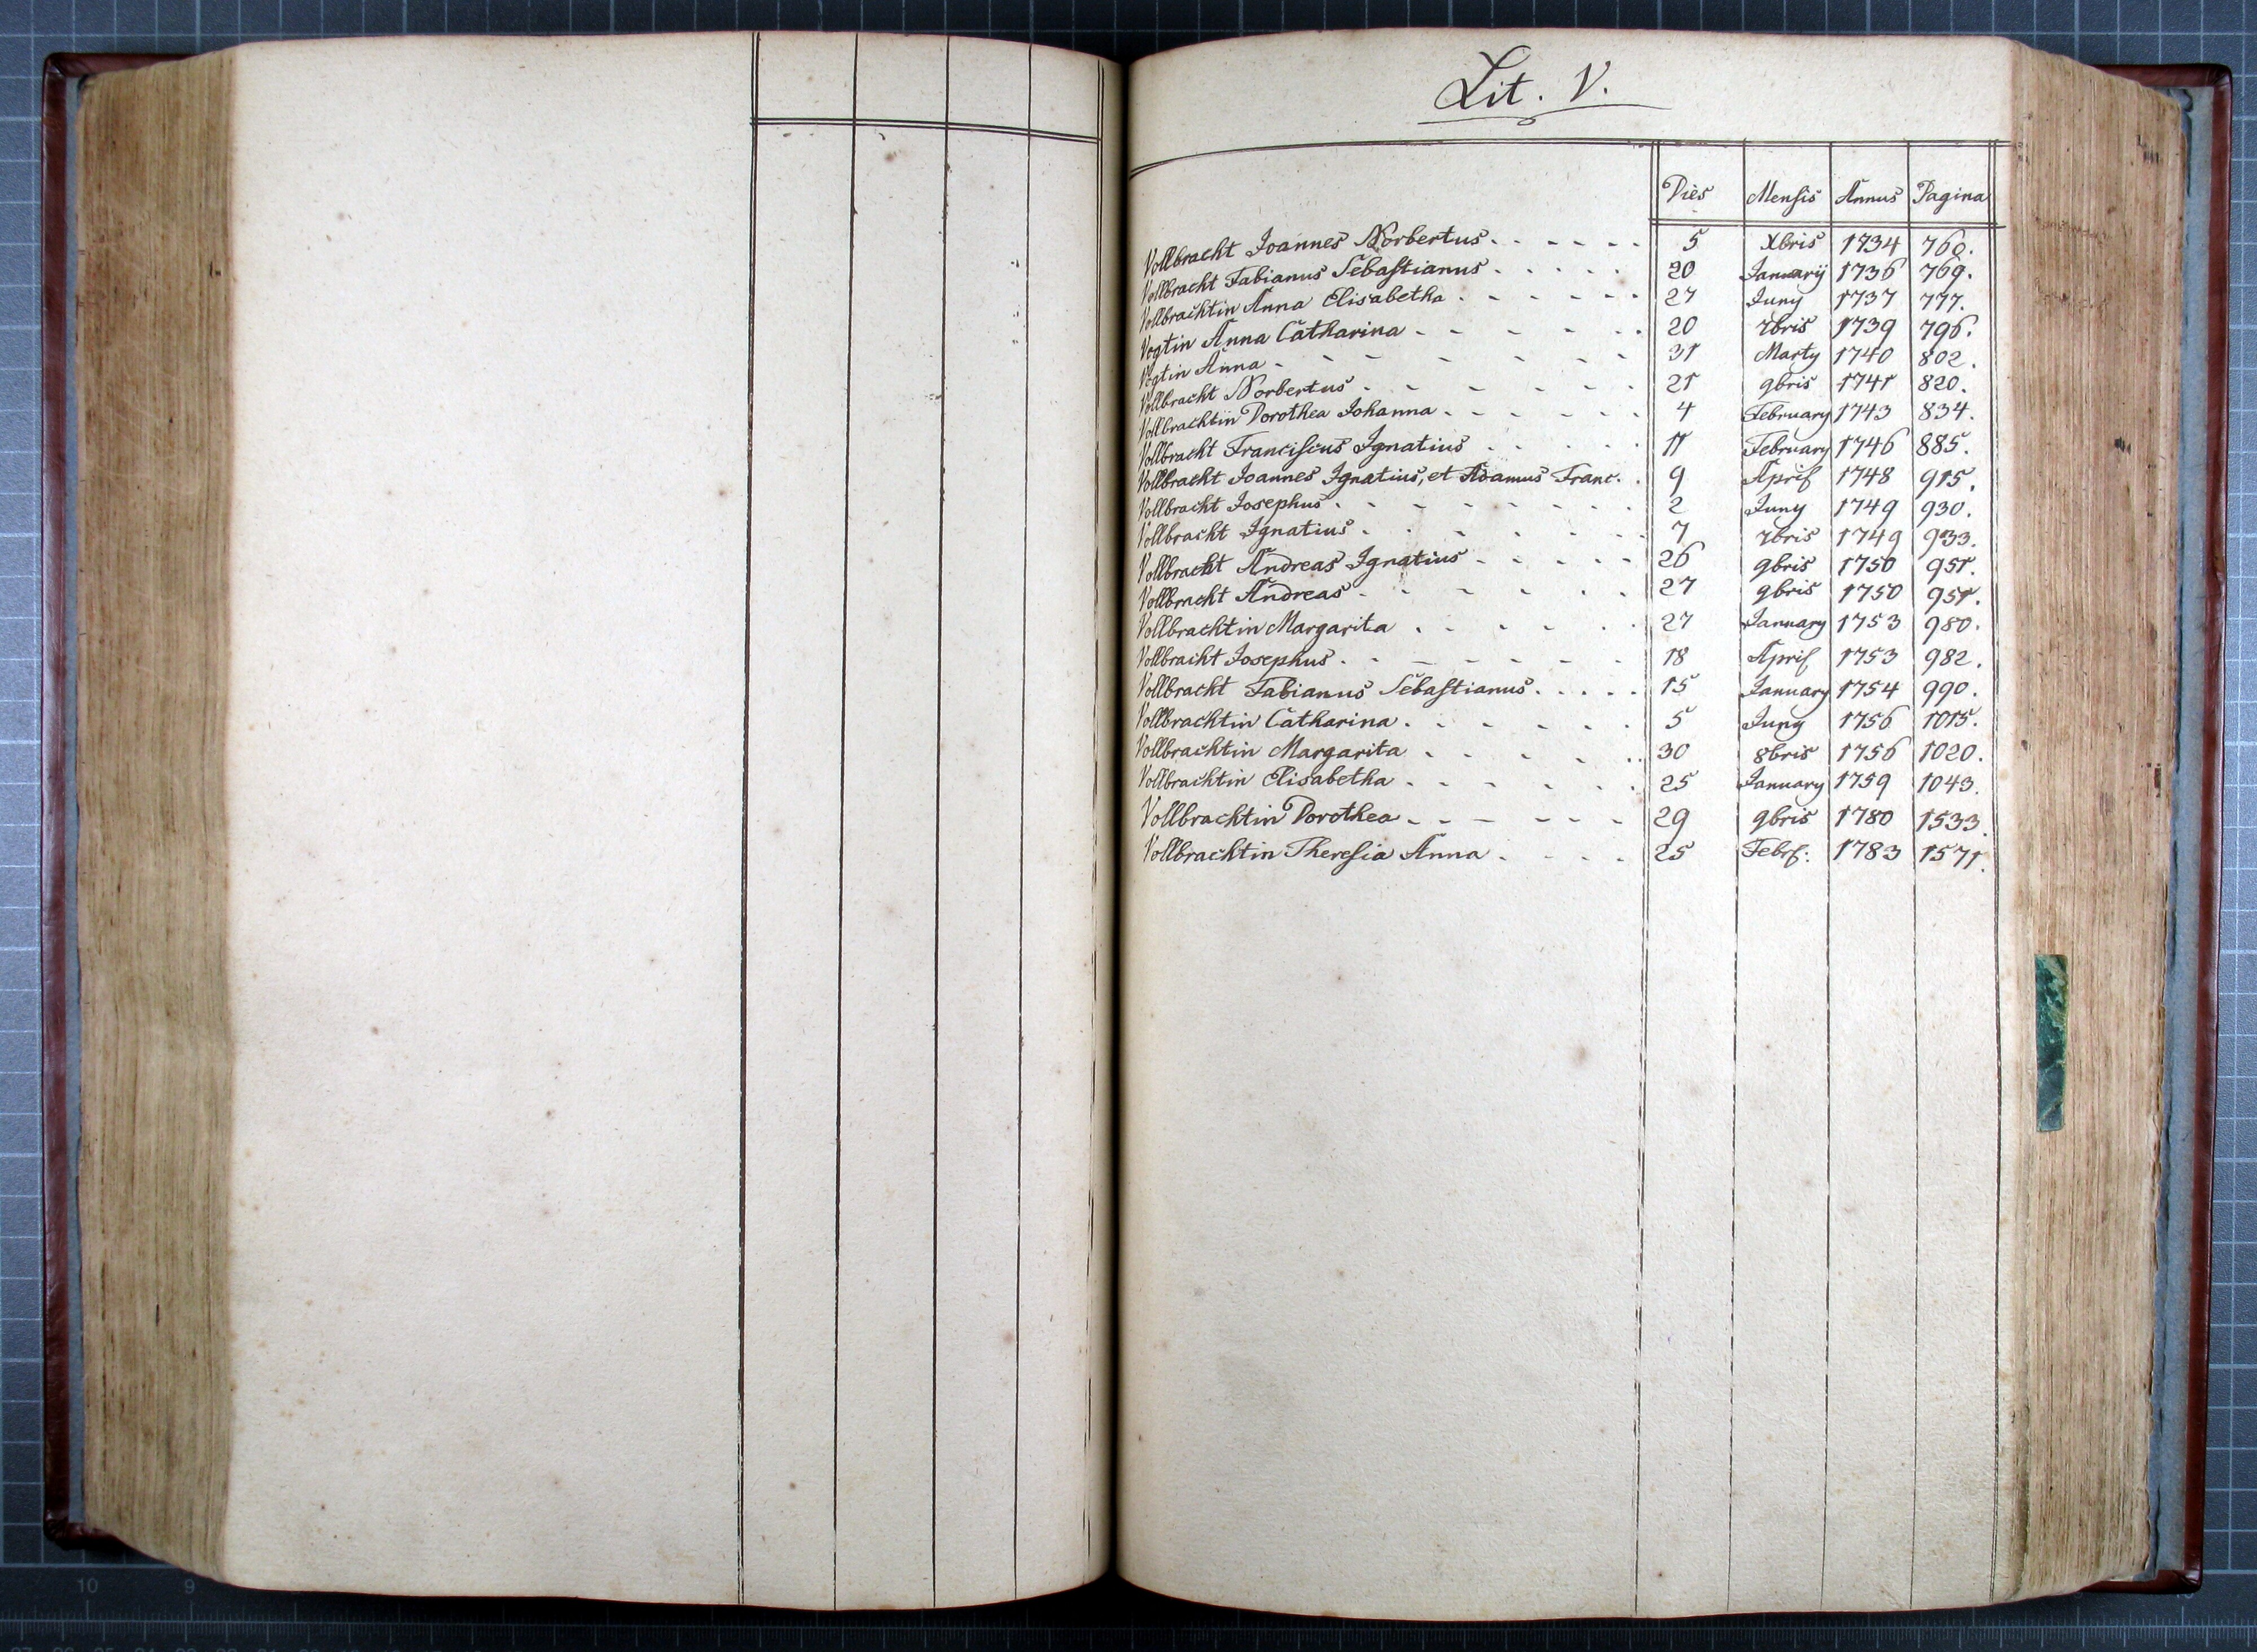 Lit. V.
Dies Mensis Annus Pagina
Vollbracht Joannes Norbertus. 5 Xbris 1734 760.
Vollbracht Fabianus Sebastianus 20 Januarij 1736 769.
Vollbrachtin Anna Elisabetha 27 Juny 1737 777.
Vogtin Anna Catharina 20 7bris 1739 796.
Vogtin Anna 31 Marty 1740 802.
Vollbracht Norbertus 21 9bris 1741 820.
Vollbrachtin Dorothea Johanna 4 February 1743 834.
Vollbracht Franciscus Ignatius 11 February 1746 885.
Vollbracht Joannes Ignatius, et Adamus Franc. 9 April 1748 915.
Vollbracht Josephus 2 Juny 1749 930.
Vollbracht Ignatius 7 7bris 1749 933.
Vollbracht Andreas Ignatius 26 9bris 1750 951.
Vollbracht Andreas 27 9bris 1750 951.
Vollbrachtin Margarita 27 January 1753 980.
Vollbracht Josephus 18 April 1753 982.
Vollbracht Fabianus Sebastianus 15 January 1754 990.
Vollbrachtin Catharina 5 Juny 1756 1015.
Vollbrachtin Margarita 30 8bris 1756 1020.
Vollbrachtin Elisabetha 25 January 1759 1043.
Vollbrachtin Dorothea 29 9bris 1780 1533.
Vollbrachtin Theresia Anna 25 Febr: 1783 1571.
10 9